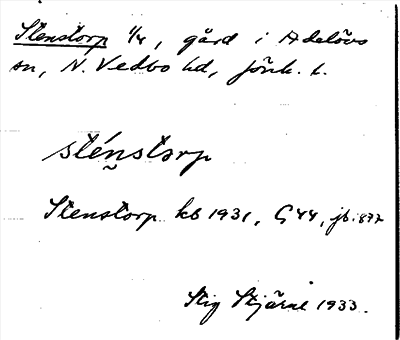 Stenstorp 1/4, gård i Adelövs
sn, N. Vedbo hd, Jönk. l.
sténstorp
Stenstorp kb 1931, G44, jb. 1877
Stig Stjärne 1933.